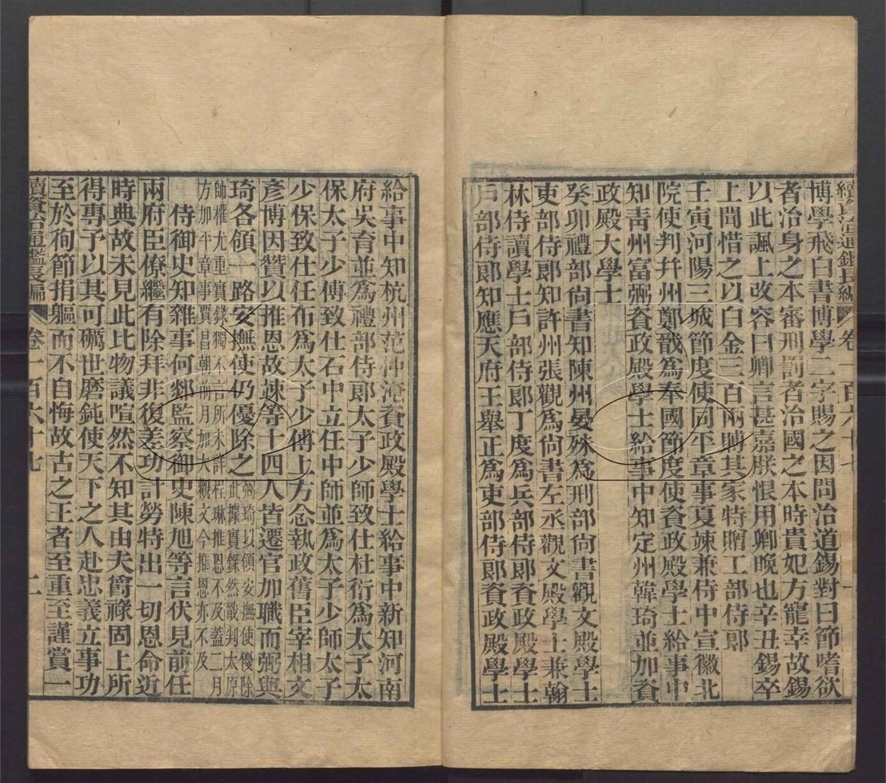 續資治通鑑長編 卷一百六十七 一
博學飛白書博學二字賜之因問治道錫對曰節嗜欲
者治身之本審刑罰者治國之本時貴妃方寵幸故錫
以此諷上改容曰卿言甚嘉朕恨用卿晚也辛丑錫卒
上閔惜之以白金三百兩賻其家特贈工部侍郎
壬寅河陽三城節度使同平章事夏竦兼侍中宣徽北
院使判幷州鄭戩爲奉國節度使資政殿學士給事中
知靑州富弼資政殿學士給事中知定州韓琦並加資
政殿大學士
癸卯禮部尚書知陳州晏殊爲刑部尚書觀文殿學士
吏部侍郎知許州張觀爲尚書左丞觀文殿學士兼翰
林侍讀學士戶部侍郎丁度爲兵部侍郎資政殿學士
戶部侍郎知應天府王舉正爲吏部侍郎資政殿學士
給事中知杭州范仲淹資政殿學士給事中新知河南
府吳育並爲禮部侍郎太子少師致仕杜衍爲太子太
保太子少傅致仕石中立任中師並爲太子少師太子
少保致仕任布爲太子少傅上方念執政舊臣宰相文
彥博因贊以推恩故竦等十四人皆遷官加職而弼與
琦各領一路安撫使仍優除之弼琦以領安撫使優除
此據實錄然戩判太原
帥權尤重實錄獨不言所未詳程琳推恩不及蓋二月
方加平章事賈昌朝前月加大觀文今推恩亦不及
侍御史知雜事何郯監察御史陳旭等言伏見前任
兩府臣僚繼有除拜非復差功計勞特出一切恩命近
時典故未見此比物議喧然不知其由夫爵祿固上所
得專予以其可礪世磨鈍使天下之人赴忠義立事功
至於徇節捐軀而不自悔故古之王者至重至謹賞一
續資治通鑑長編 卷一百六十七 二